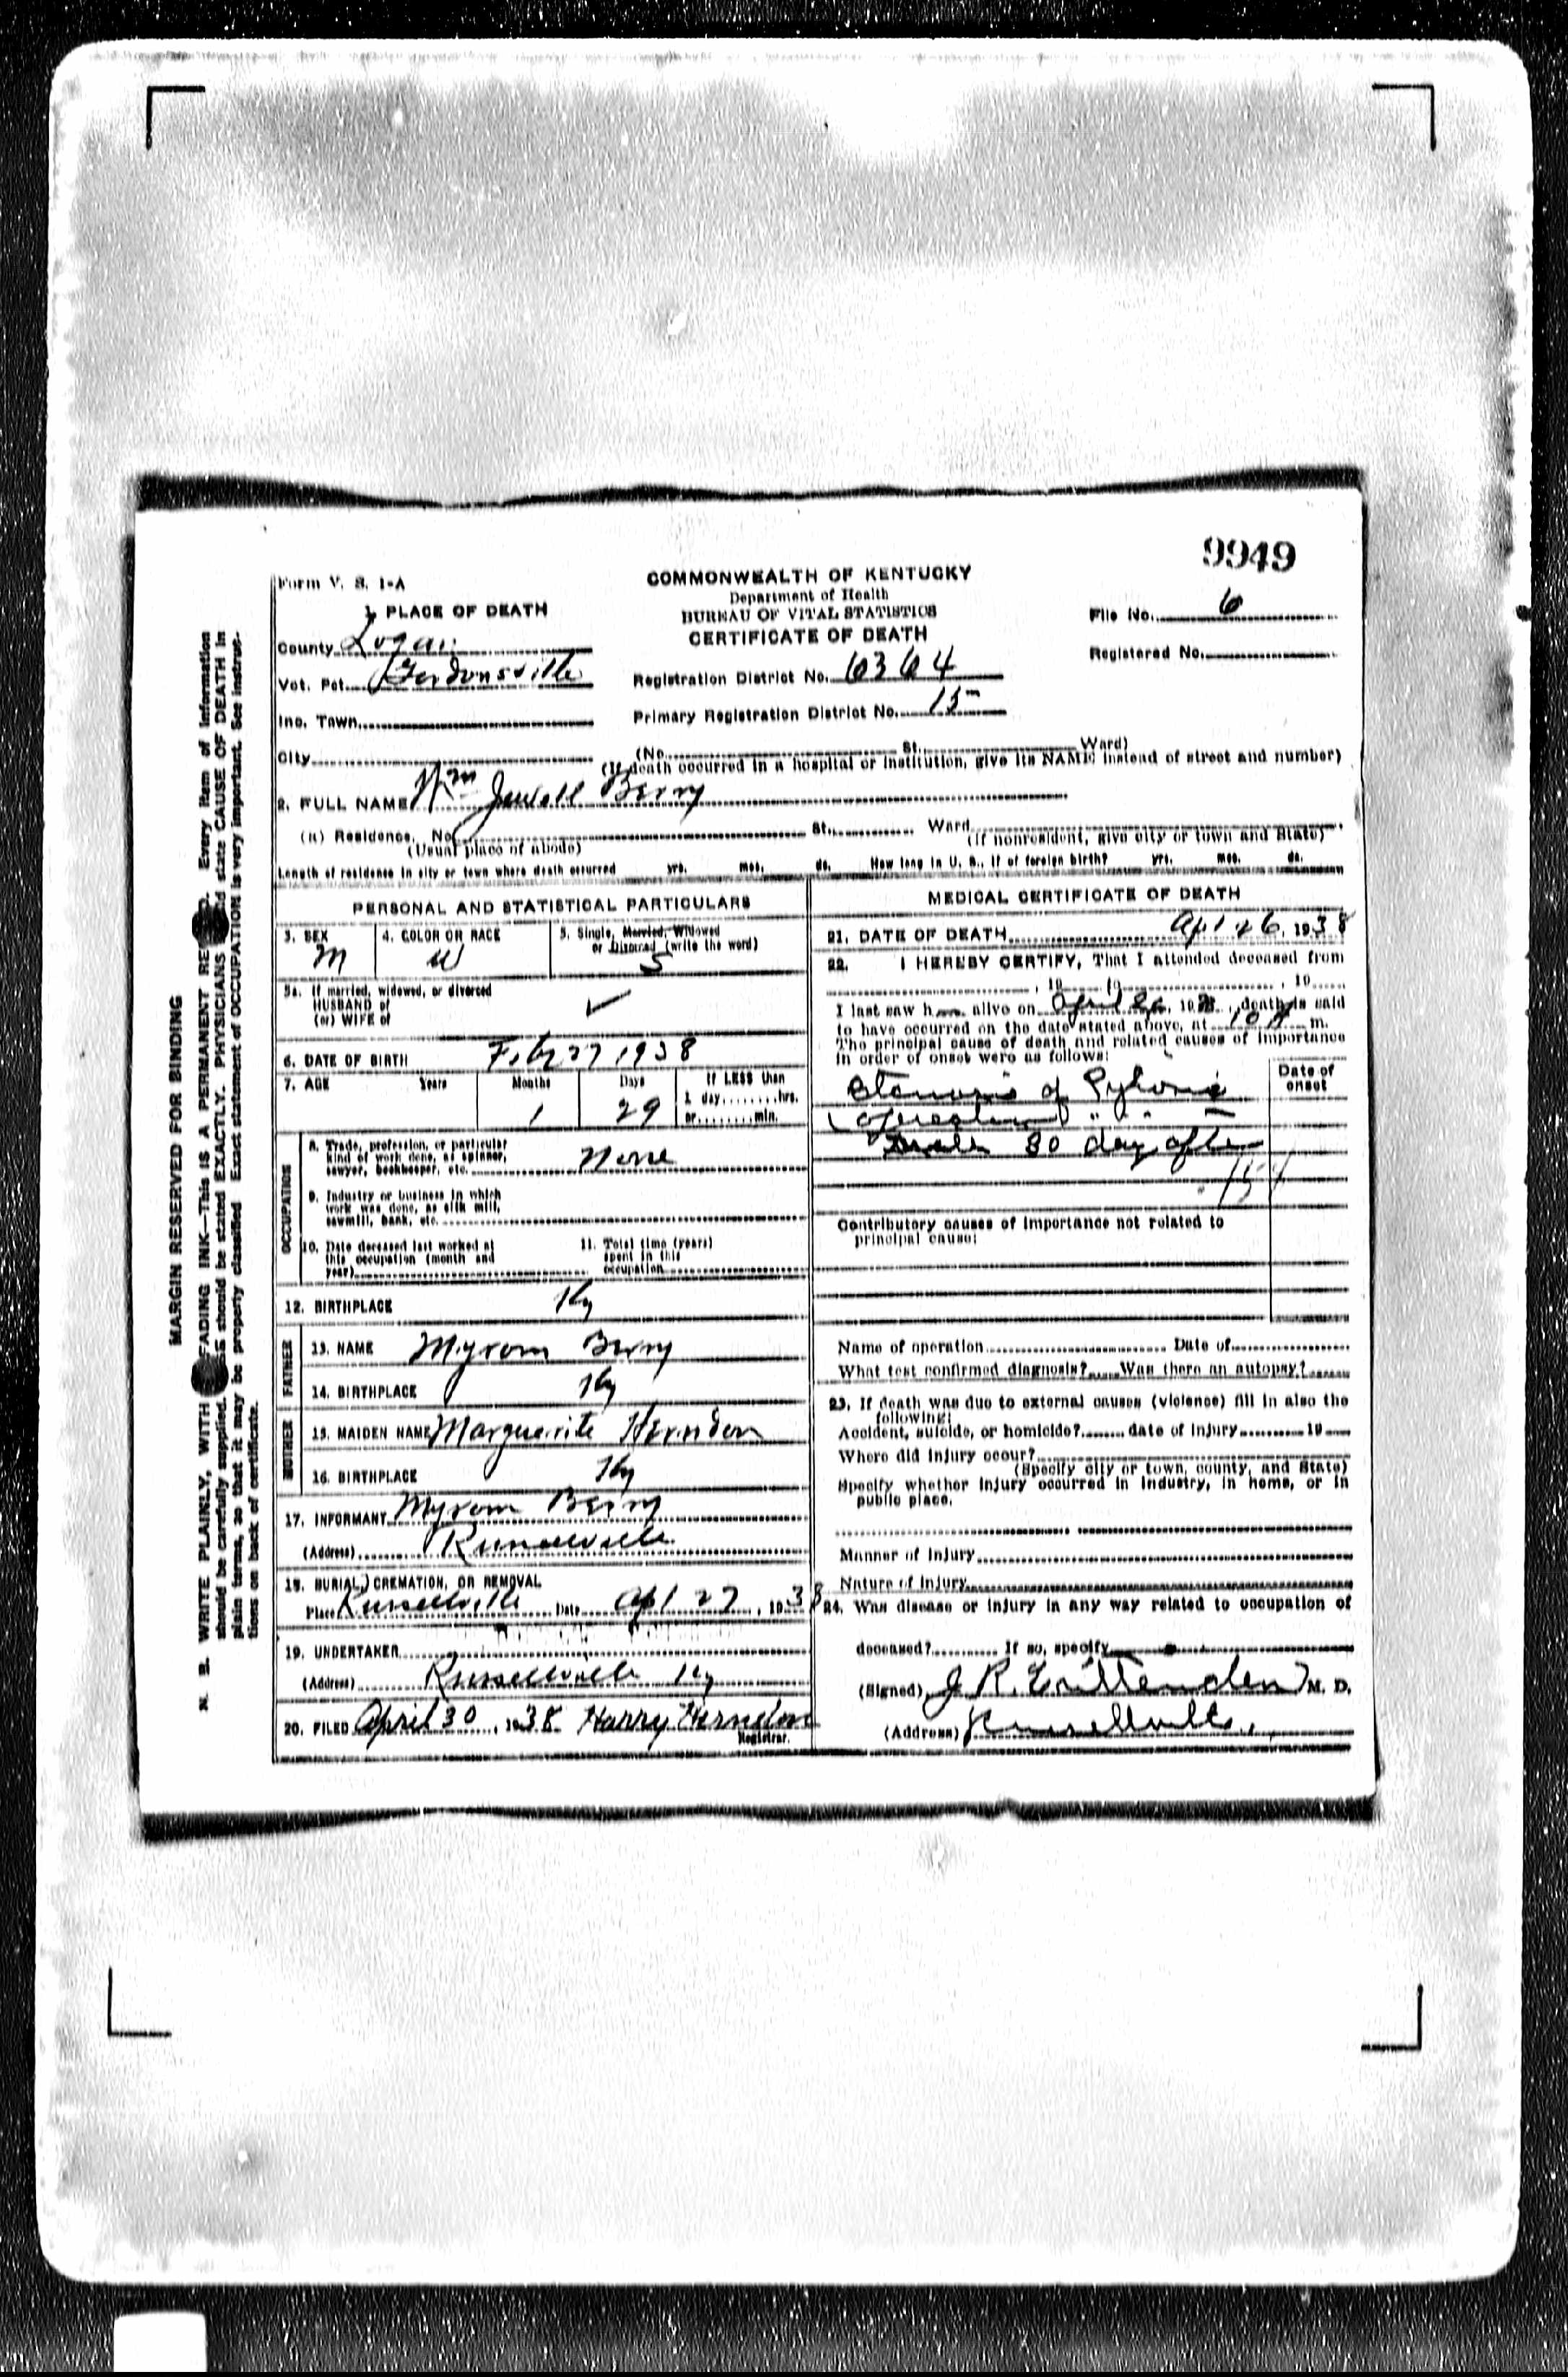 9949
Form V. S. 1-A
COMMONWEALTH OF KENTUCKY
Department of Health
BUREAU OF VITAL STATISTICS
CERTIFICATE OF DEATH
1. PLACE OF DEATH
File No. 6
County Logan
Registered No.
Vot. Pct. Gordonsville
Registration District No. 6364
Inc. Town
Primary Registration District No. 15
City
(No. St. Ward)
(If death occurred in a hospital or institution, give its NAME instead of street and number)
2. FULL NAME Wm Jewell Berry
(a) Residence, No. St. Ward
(Usual place of abode) (If nonresident, give city or town and State)
Length of residence in city or town where death occurred yrs. mos. ds. How long in U. S., if of foreign birth? yrs. mos. ds.
PERSONAL AND STATISTICAL PARTICULARS
3. SEX
M
4. COLOR OR RACE
W
5. Single, Married, Widowed
or Divorced (write the word)
S
5a. If married, widowed, or divorced
HUSBAND of
(or) WIFE of
6. DATE OF BIRTH Feb 27 1938
7. AGE Years Months Days If LESS than
1 day,........hrs.
1 29 or........min.
OCCUPATION
8. Trade, profession, or particular
kind of work done, as spinner,
sawyer, bookkeeper, etc. None
9. Industry or business in which
work was done, as silk mill,
sawmill, bank, etc.
10. Date deceased last worked at
this occupation (month and
year)
11. Total time (years)
spent in this
occupation
12. BIRTHPLACE Ky
FATHER
13. NAME Myrom Berry
14. BIRTHPLACE Ky
MOTHER
15. MAIDEN NAME Marguerite Herndon
16. BIRTHPLACE Ky
17. INFORMANT Myrom Berry
(Address) Russellville
18. BURIAL, CREMATION, OR REMOVAL
Place Russellville Date Apl 27, 1938
19. UNDERTAKER
(Address) Russellville Ky
20. FILED April 30, 1938 Harry Herndon
Registrar.
MEDICAL CERTIFICATE OF DEATH
21. DATE OF DEATH Apl 26, 1938
22. I HEREBY CERTIFY, That I attended deceased from
, 19 to , 19
I last saw h alive on April 26, 1938, death is said
to have occurred on the date stated above, at 10 A m.
The principal cause of death and related causes of importance
in order of onset were as follows:
Date of
onset
Stenosis of Pyloris
Operation " "
Death 30 day after
Contributory causes of importance not related to
principal cause:
Name of operation Date of
What test confirmed diagnosis? Was there an autopsy?
23. If death was due to external causes (violence) fill in also the
following:
Accident, suicide, or homicide? date of injury 19
Where did injury occur?
(Specify city or town, county, and State)
Specify whether injury occurred in industry, in home, or in
public place.
Manner of Injury
Nature of Injury
24. Was disease or injury in any way related to occupation of
deceased? If so, specify
(Signed) J R. Crittenden M. D.
(Address) Russellville,
MARGIN RESERVED FOR BINDING
N. B. WRITE PLAINLY, WITH FADING INK—THIS IS A PERMANENT RE Every item of information
should be carefully supplied. should be stated EXACTLY. PHYSICIANS state CAUSE OF DEATH in
plain terms, so that it may be properly classified. Exact statement of OCCUPATION is very important. See instruc-
tions on back of certificate.